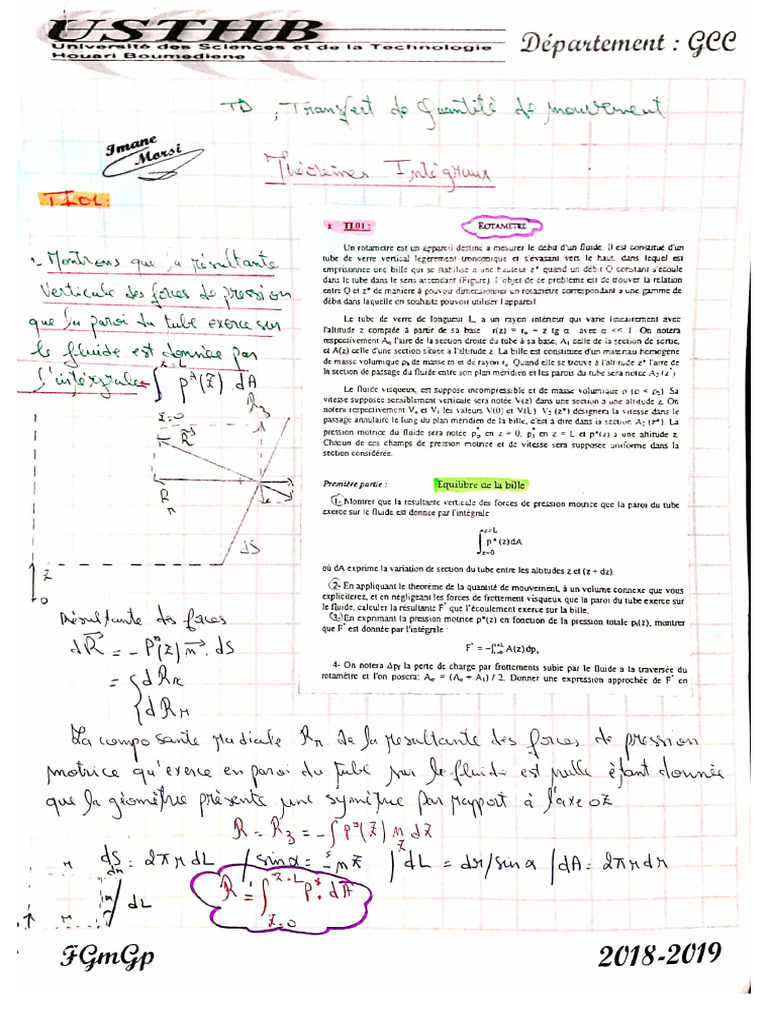 USTHB
Université des Sciences et de la Technologie
Houari Boumediene
Département : GCC
TD : Transfert de Quantité de mouvement
Imane
Morsi
Théorèmes Intégraux
TI01:
1- Montrons que la résultante
verticale des forces de pression
que la paroi du tube exerce sur
le fluide est donnée par
l'intégrale ∫ z=0 z=L p*(z) dA
TI.01 :
ROTAMETRE
Un rotametre est un appareil destiné a mesurer le debit d'un fluide. Il est constitué d'un
tube de verre vertical légerement tronconique et s'évasant vers le haut, dans lequel est
emprisonnee une bille qui se stabilise a une hauteur z* quand un débit Q constant s'écoule
dans le tube dans le sens ascendant (Figure). L'objet de ce problème est de trouver la relation
entre Q et z* de manière à pouvoir dimensionner un rotametre correspondant a une gamme de
débit dans laquelle on souhaite pouvoir utiliser l'appareil.
Le tube de verre de longueur L, a un rayon intérieur qui varie linéairement avec
l'altitude z comptée à partir de sa base r(z) = r₀ + z tg α avec α << 1. On notera
respectivement A₀ l'aire de la section droite du tube à sa base, A₁ celle de la section de sortie,
et A(z) celle d'une section située a l'altitude z. La bille est constituée d'un materiau homogene
de masse volumique ρ₂ de masse m et de rayon r₂. Quand elle se trouve à l'altitude z* l'aire de
la section de passage du fluide entre son plan méridien et les parois du tube sera notée A₂ (z*)
Le fluide visqueux, est suppose incompressible et de masse volumique ρ (ρ < ρ₂). Sa
vitesse supposée sensiblement verticale sera notée V(z) dans une section a une altitude z. On
notera respectivement V₀ et V₁ les valeurs V(0) et V(L). V₂ (z*) désignera la vitesse dans le
passage annulaire le long du plan méridien de la bille, c'est à dire dans la section A₂ (z*). La
pression motrice du fluide sera notée p*₀ en z = 0, p*₁ en z = L et p*(z) a une altitude z.
Chacun de ces champs de pression motrice et de vitesse sera supposée uniforme dans la
section considérée.
Première partie :
Equilibre de la bille
1- Montrer que la resultante verticale des forces de pression motrice que la paroi du tube
exerce sur le fluide est donnee par l'intégrale :
∫ z=0 z=L p*(z)dA
où dA exprime la variation de section du tube entre les altitudes z et (z + dz).
2- En appliquant le theorème de la quantité de mouvement, à un volume connexe que vous
expliciterez, et en négligeant les forces de frottement visqueux que la paroi du tube exerce sur
le fluide, calculer la résultante F* que l'écoulement exerce sur la bille.
3- En exprimant la pression motrice p*(z) en fonction de la pression totale pₜ(z), montrer
que F* est donnée par l'intégrale :
F* = -∫ z=0 z=L A(z)dpₜ
4- On notera Δpf la perte de charge par frottements subie par le fluide a la traversée du
rotamètre et l'on posera: Aₘ = (A₀ + A₁) / 2. Donner une expression approchée de F* en
Rz
R
R
r
dS
z
0
Résultante des forces
dR = - P*(z) n . dS
= { dRr
dRz
La composante radiale Rr de la résultante des forces de pression
motrice qu'exerce en paroi du tube sur le fluide est nulle étant donnée
que la géométrie présente une symétrie par rapport à l'axe oz
R = Rz = -∫ p*(z) n dz
dS = 2πr dL / sin α = / dL = dr/sin α / dA = 2πr dr
dr
dL
R = ∫ z=0 z=L p* . dA
FGmGp
2018-2019